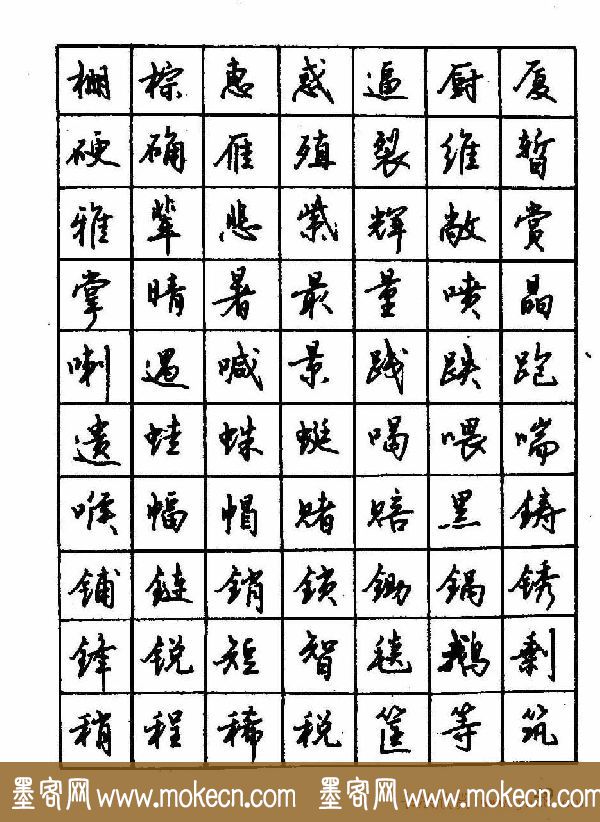 棚 棕 惠 惑 逼 厨 厦
硬 确 雁 殖 裂 维 暂
雅 辈 悲 紫 辉 敞 赏
掌 晴 暑 最 量 喷 晶
喇 遇 喊 景 践 跌 跑
遗 蛙 蛛 蜓 喝 喂 喘
喉 幅 帽 赌 赔 黑 铸
铺 链 销 锁 锄 锅 锈
锋 锐 短 智 毯 鹅 剩
稍 程 稀 税 筐 等 筑
墨客网 www.mokecn.com 墨客网 www.mokecn.com